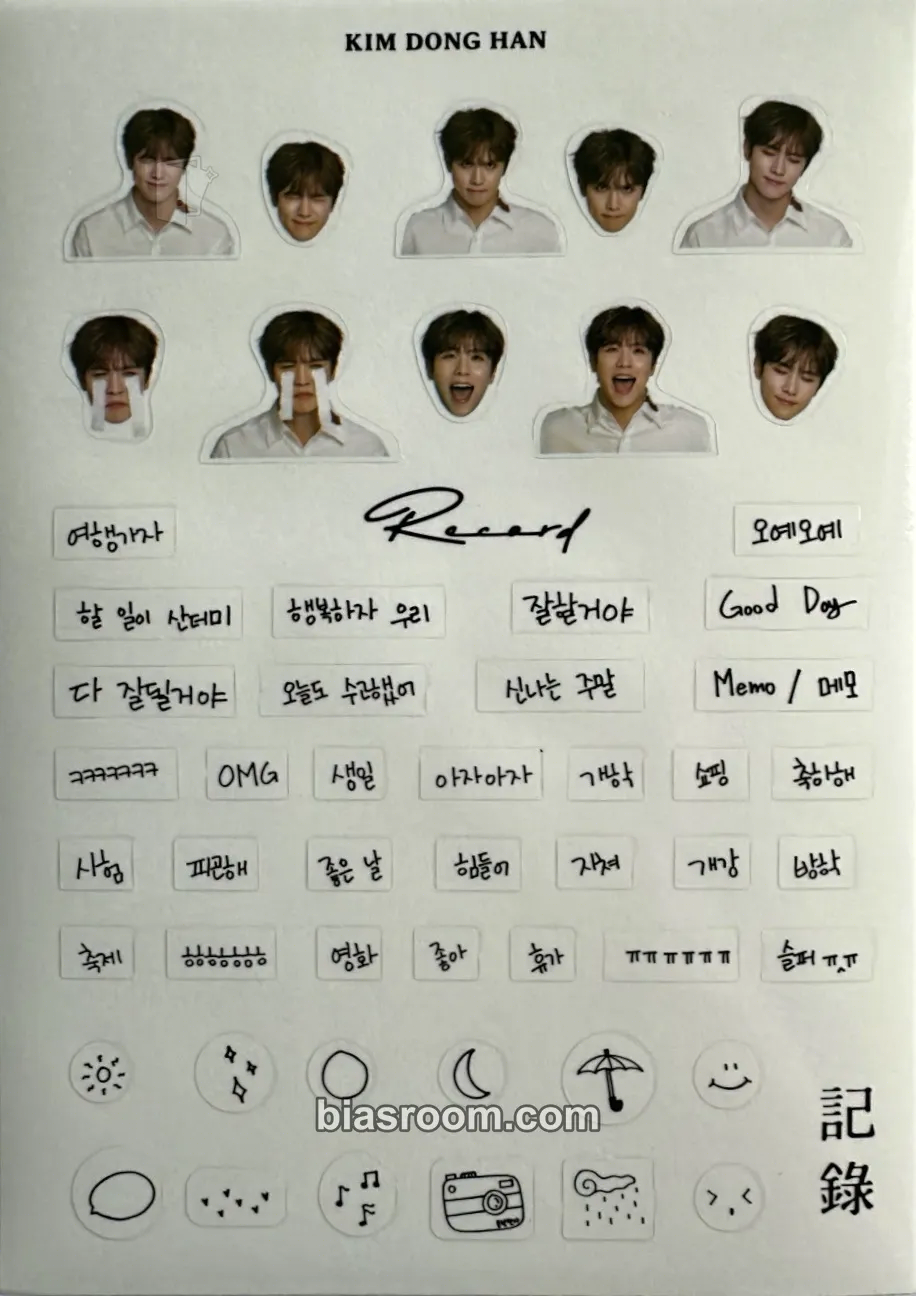 KIM DONG HAN
여행가자
Record
오예오예
할 일이 산더미
행복하자 우리
잘할거야
Good Day
다 잘될거야
오늘도 수고했어
신나는 주말
Memo / 메모
ㅋㅋㅋㅋㅋㅋㅋ
OMG
생일
아자아자
개방학
쇼핑
축하해
시험
피곤해
좋은 날
힘들어
지쳐
개강
방학
축제
ㅎㅎㅎㅎㅎㅎ
영화
좋아
휴가
ㅠㅠㅠㅠㅠㅠ
슬퍼 ㅠ^ㅠ
記
錄
biasroom.com